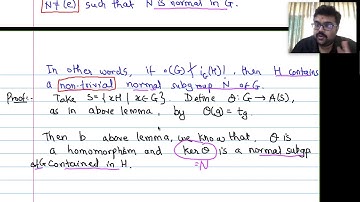 N≠(e) such that N is normal in G.
In other words, if o(G) ∤ i_G(H)!, then H contains
a non-trivial normal subgroup N of G.
Proof:- Take S = {xH | x∈G}. Define θ: G→A(S),
as in above lemma, by θ(g) = t_g.
Then b above lemma, we know that, θ is
a homomorphism and ker θ is a normal subgp
of G contained in H. =N